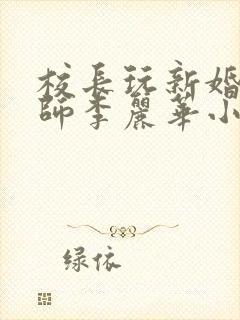 校長玩新婚
師李麗華小
绿依